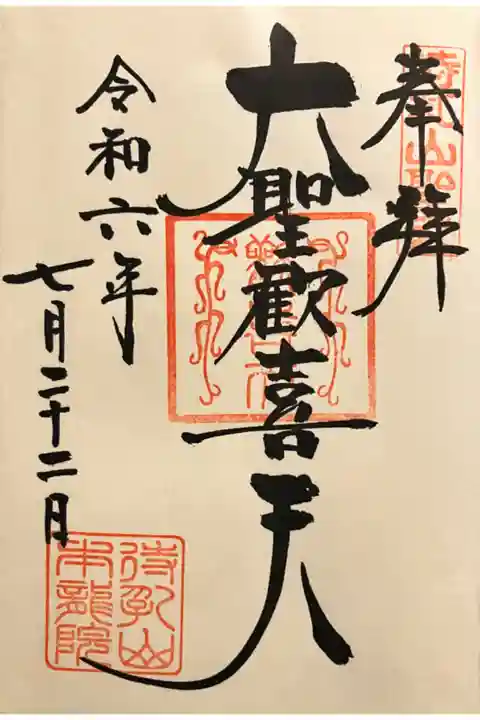 奉拝
待乳山聖
大聖歓喜天
令和六年
七月二十二日
待乳山
本龍院